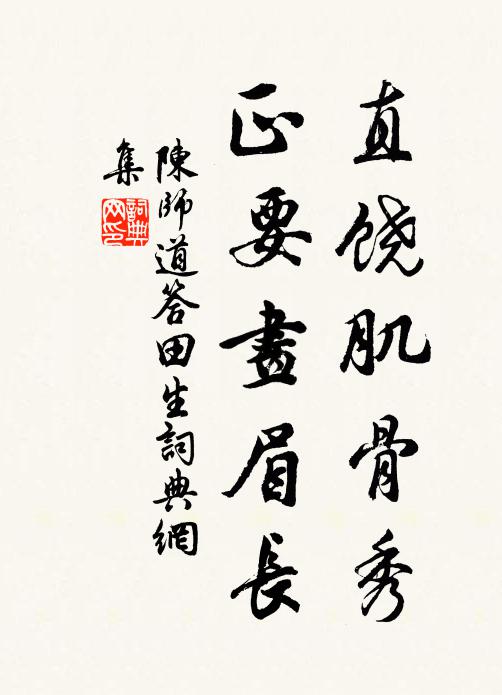 直饶肌骨秀
正要畫眉長
陳師道答田生詞典網
集
詞典
网印